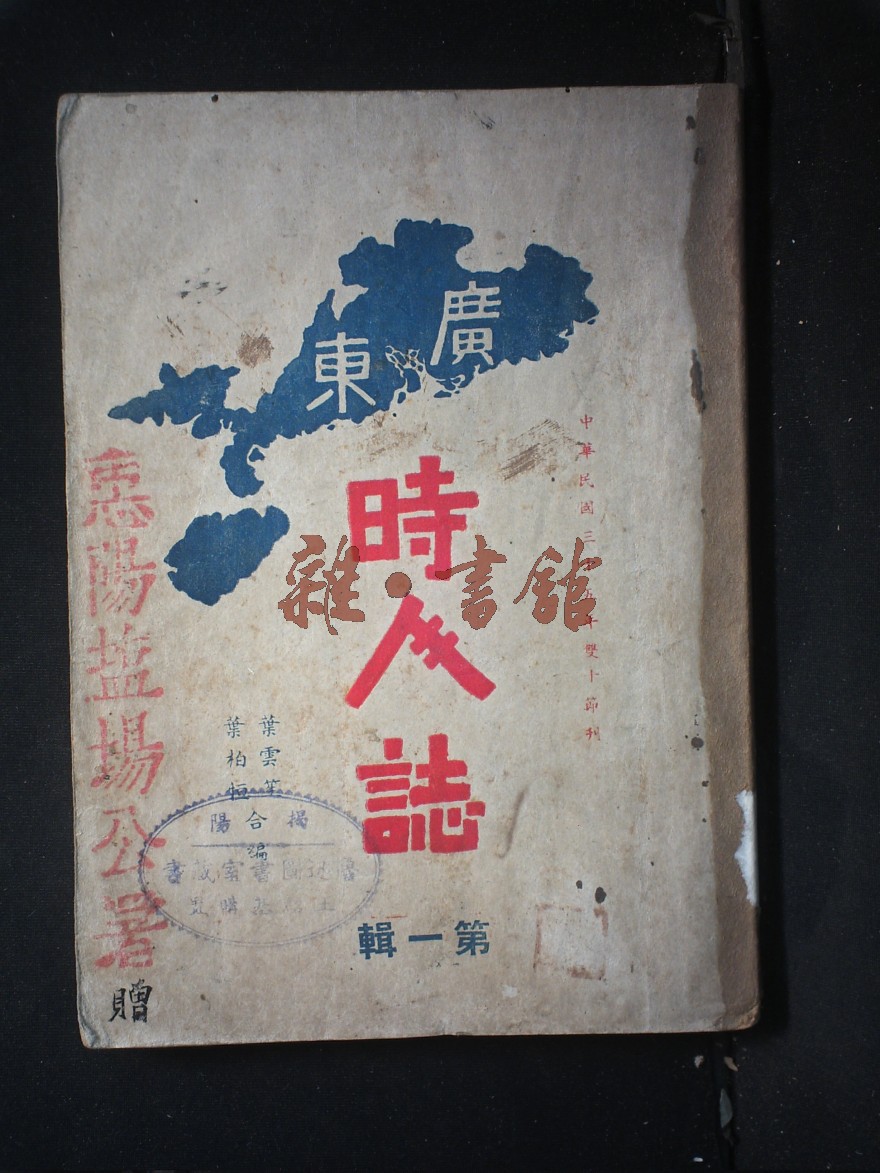 廣東
時人誌
中華民國三十五年雙十節刊
葉雲笙
葉柏恒
合編
第一輯
惠陽塩場公署
贈
揭陽
書藏室書圖
雜·書館